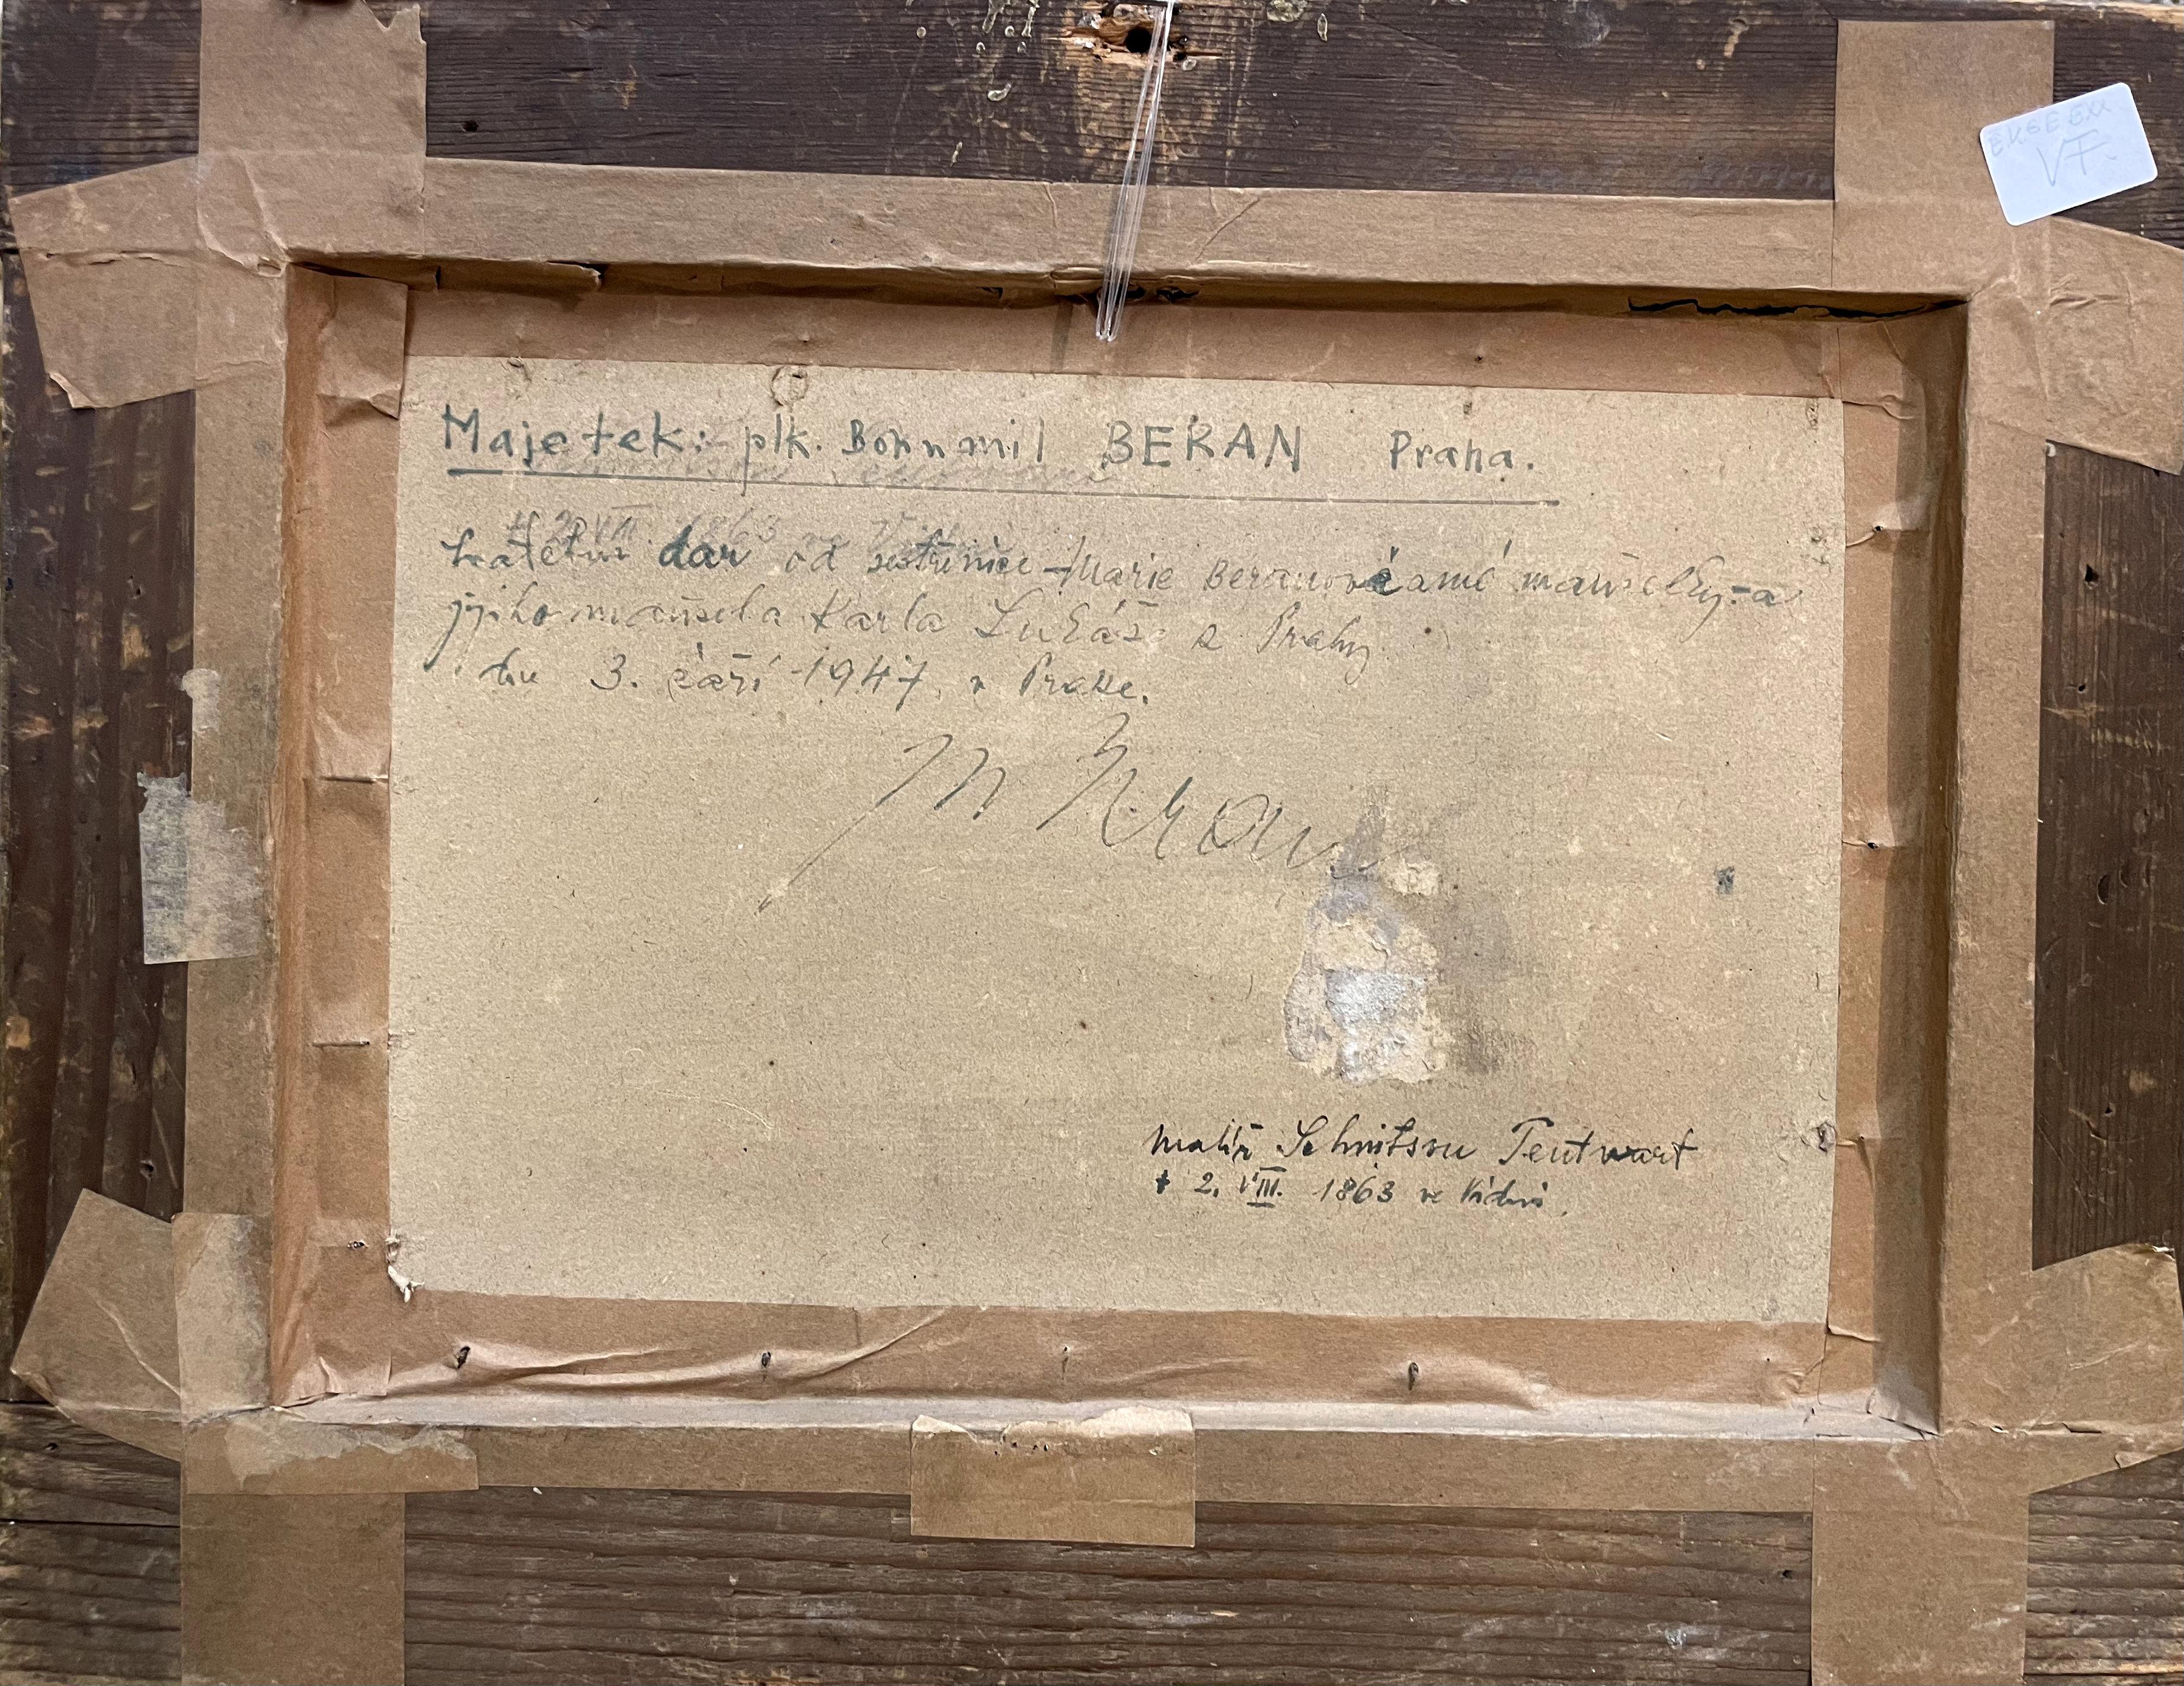 E.K.S.E EXX
VF.
Majetek: plk. Bohumil BERAN Praha.
dar od sestřenice Marie Beranové manželky a
jejího manžela Karla Lukáš z Prahy
dne 3. září 1947 v Praze.
malíř Schnitson Teutwart
+ 2. VIII. 1863 ve Vídni.